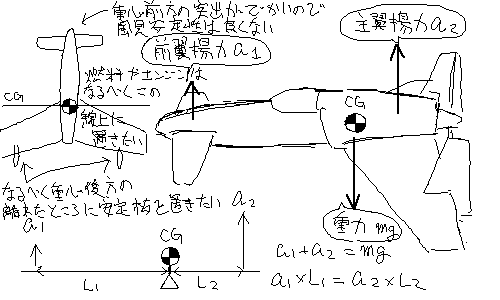 重心前方の突出がでかいので
風見安定性は良くない
前翼揚力a1
主翼揚力a2
燃料やエンジンは
なるべくこの
線上に
置きたい
CG
CG
なるべく重心後方の
離れたところに安定板を置きたい
重力mg
a1 a2
CG
L1 L2
a1+a2=mg
a1×L1=a2×L2